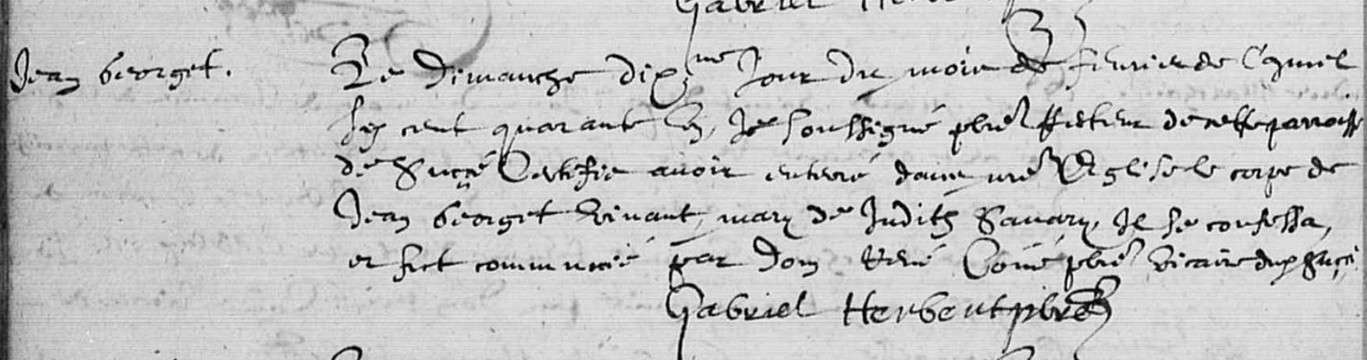 Gabriel Her
Jean Georget.
Le dimanche dix.me Jour du moie de febvrier de l'an mil
six cent quarante & , Je soussigné pbre Recteur de cette parroisse
de Sucçé Certifie avoir enterré dans nre Eglise le corps de
Jean Georget vivant mary de Judith Savary, Il se confessa,
et fut communié par dom René pbre Vicaire dud Sucçé
Gabriel Herbert pbre